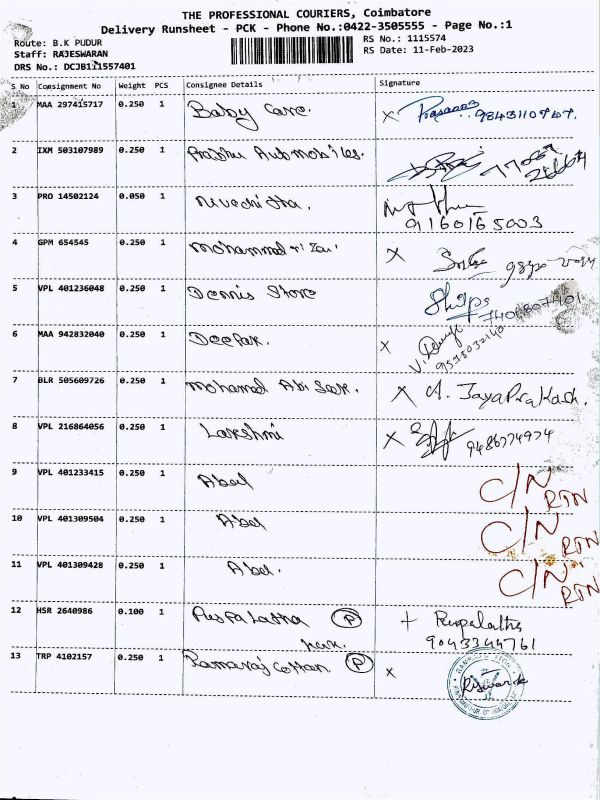 THE PROFESSIONAL COURIERS, Coimbatore
Delivery Runsheet - PCK - Phone No.:0422-3505555 - Page No.:1
Route: B.K PUDUR
RS No.: 1115574
Staff: RAJESWARAN
RS Date: 11-Feb-2023
DRS No.: DCJB111557401
S No Consignment No Weight PCS Consignee Details Signature
1 MAA 297415717 0.250 1 Baby Care. X 9843110747.
2 IXM 503107989 0.250 1 Prabhu Automobiles.
3 PRO 14502124 0.050 1 Nivechitha.
9160165003
4 GPM 654545 0.250 1 Mohammed X
5 VPL 401236048 0.250 1 Dennis Store Shilpa
7401807401
6 MAA 942832040 0.250 1 Deepak. X
9578032140
7 BLR 505609726 0.250 1 Mohamed Abi X A. JayaPrakash.
8 VPL 216864056 0.250 1 Lakshmi X 9486774974
9 VPL 401233415 0.250 1 Abel C/N RTN
10 VPL 401309504 0.250 1 Abel C/N RTN
11 VPL 401309428 0.250 1 Abel. C/N RTN
12 HSR 2640986 0.100 1 Puspalatha P + Puspalatha
9043344761
13 TRP 4102157 0.250 1 Ramaraj Cotton P X